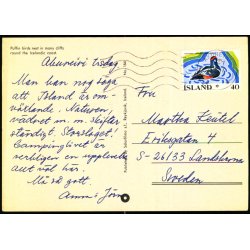 Puffin birds nest in many cliffs
round the Icelandic coast
Akureyri tisdag
Man kan nog säga
att Island är om-
växlande. Naturen,
vädret m.m. skifter
ständigt. Storslaget!
Campinglivet är
verkligen en upplevelse
aut väl här.
Må så gott
Anna & Jörn
ÍSLAND 40
Fru
Martha Keutel
Eriksgatan 4
S-26133 Landskrona
Sweden